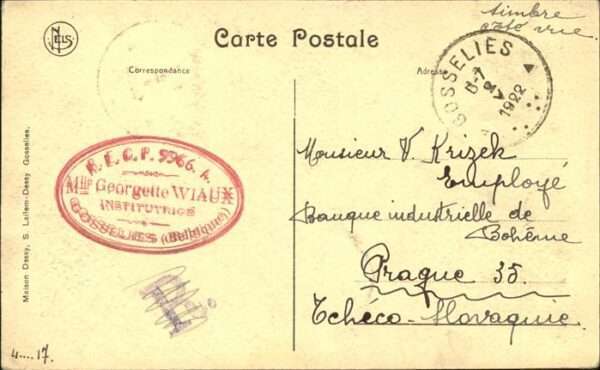 NELS
Carte Postale
timbre
côté vue.
Correspondance
Adresse
GOSSELIES
6-7
2 V
1922
R.E.C.P. 5966. A.
Mlle Georgette WIAUX
INSTITUTRICE
GOSSELIES (Belgique)
Monsieur V. Krizek
Employé
Banque industrielle de
Bohême
Prague 35.
Tchéco-Slovaquie.
Maison Dessy, S. Lallem-Dessy Gosselies.
4....17.